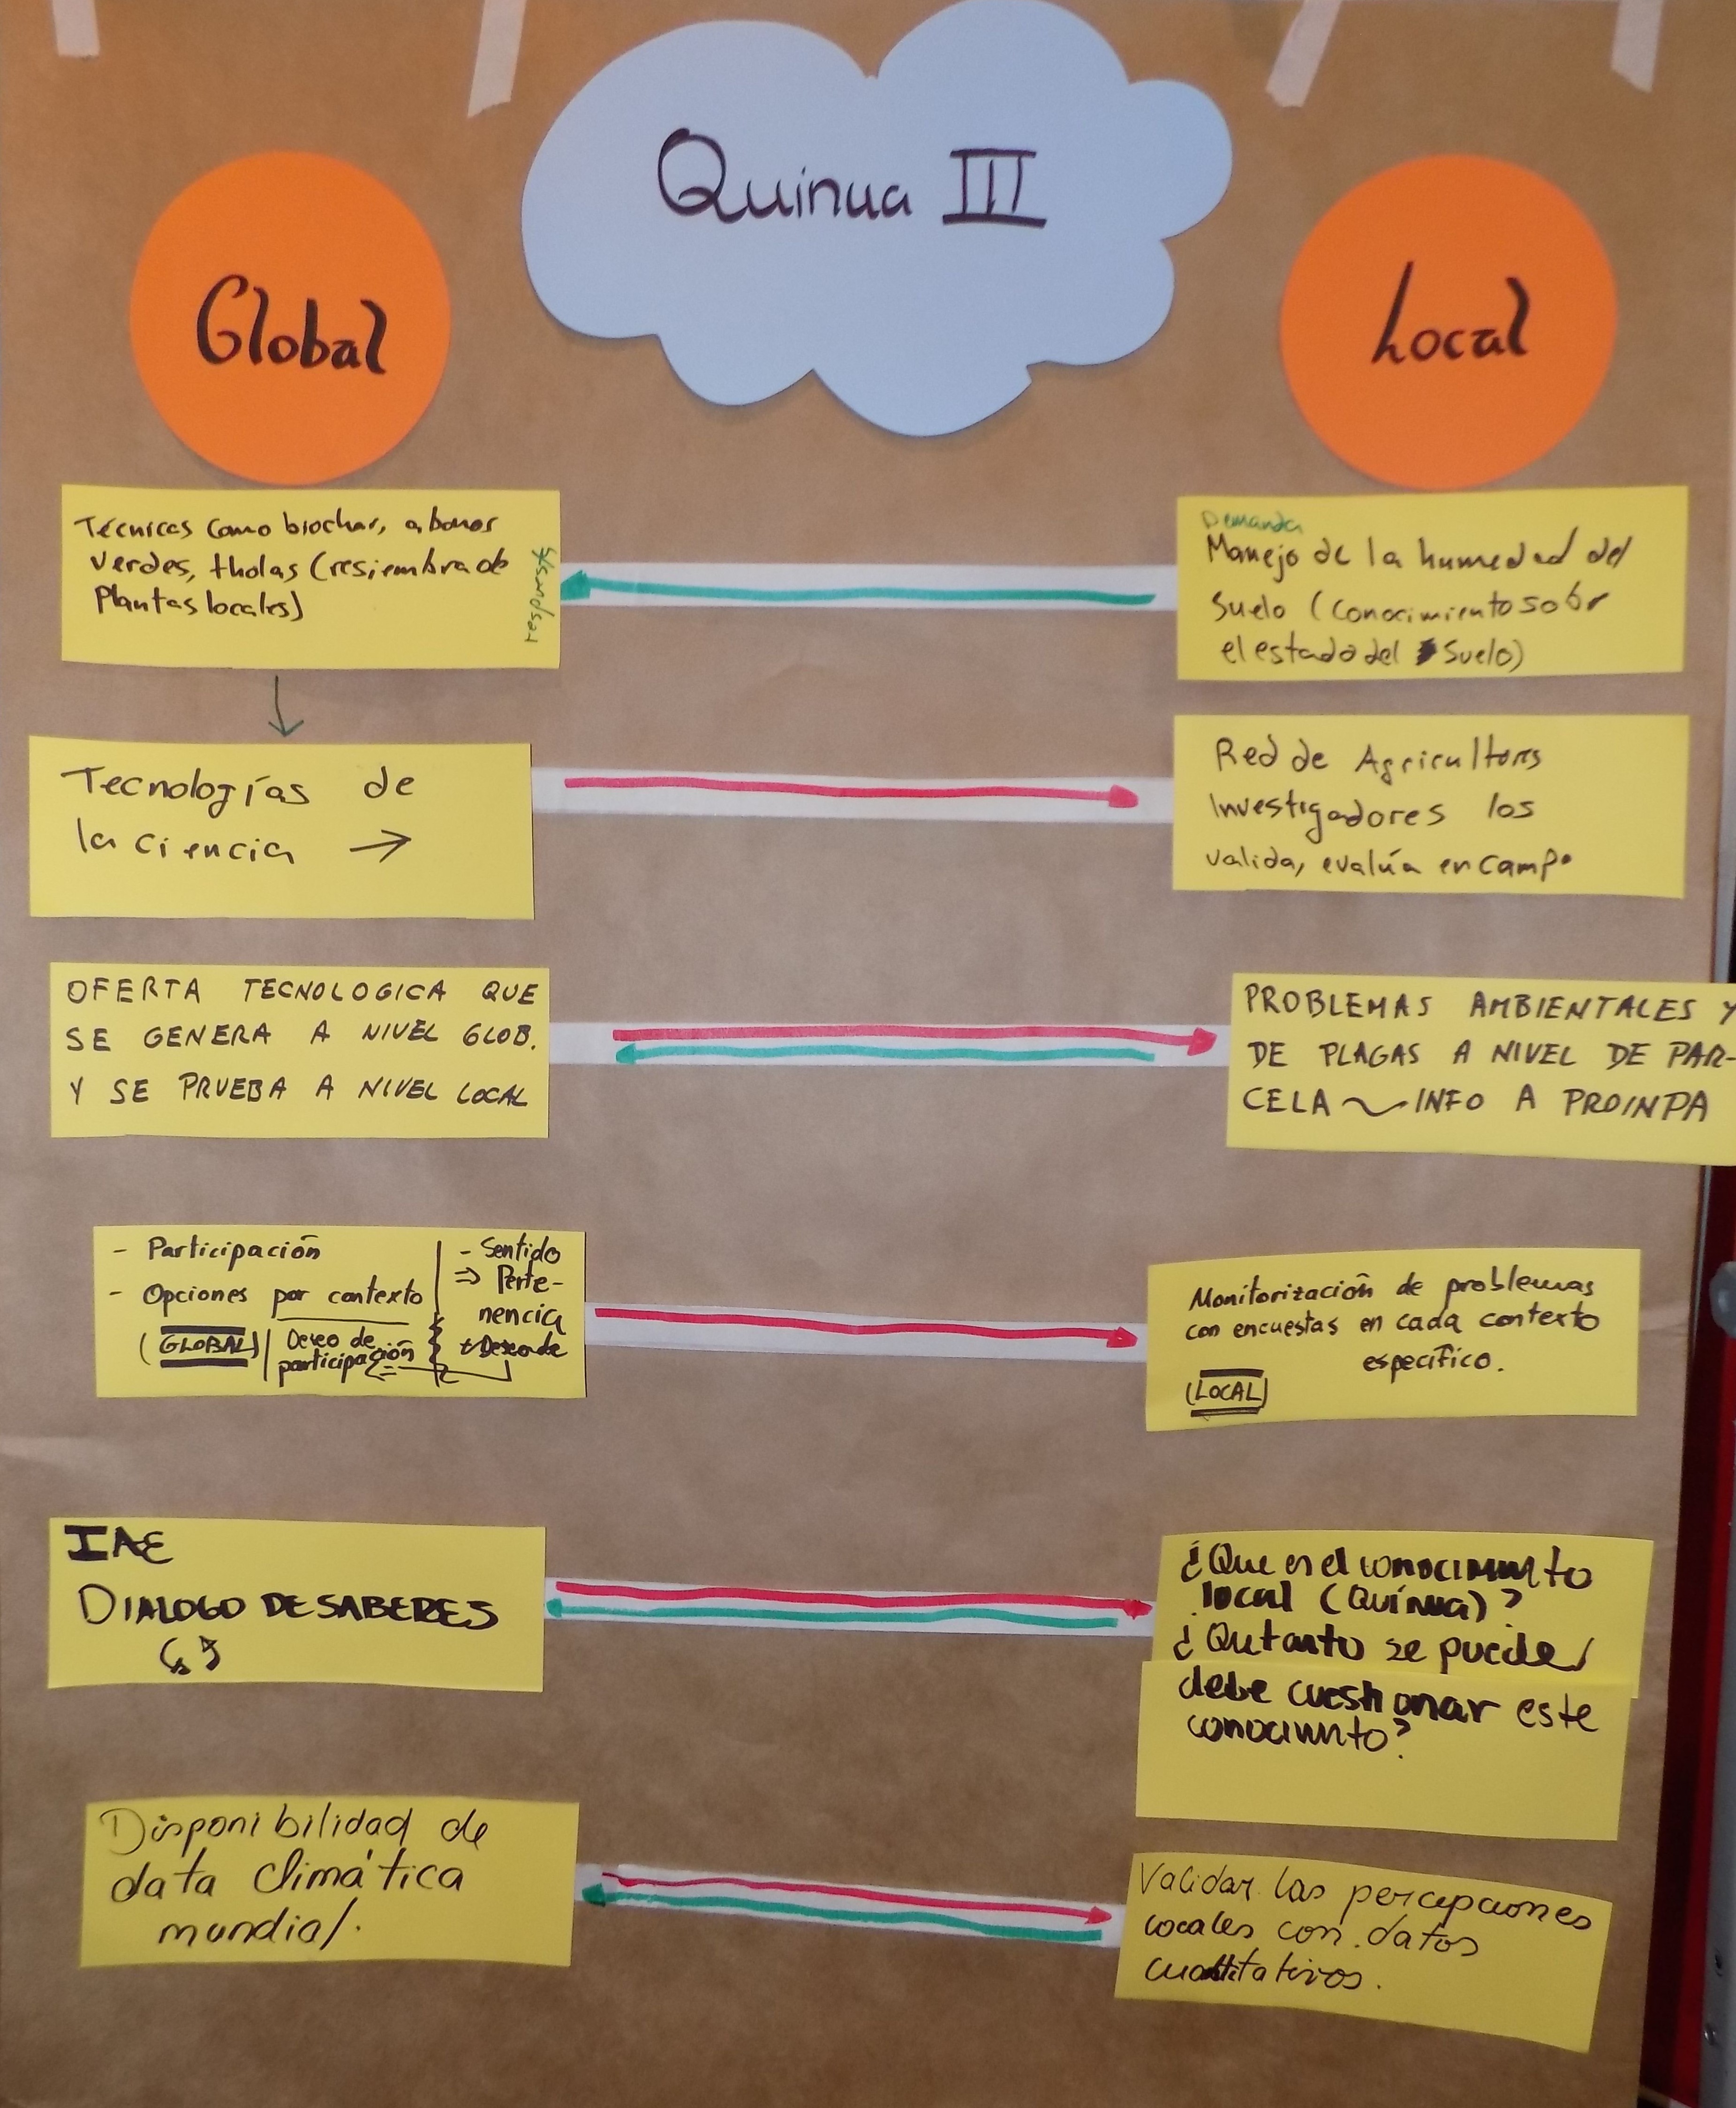 Quinua III
Global
Local
Técnicas como biochar, abonos
verdes, tholas (resiembra de
plantas locales)
respuesta
Demanda
Manejo de la humedad del
suelo (conocimiento sobr
el estado del suelo)
Tecnologías de
la ciencia →
Red de Agricultores
Investigadores los
valida, evalúa en campo
OFERTA TECNOLOGICA QUE
SE GENERA A NIVEL GLOB.
Y SE PRUEBA A NIVEL LOCAL
PROBLEMAS AMBIENTALES Y
DE PLAGAS A NIVEL DE PAR-
CELA ~ INFO A PROINPA
- Participación
- Opciones por contexto
(GLOBAL)
Deseo de
participación
- Sentido
⇒ Perte-
nencia
Monitorización de problemas
con encuestas en cada contexto
específico.
(LOCAL)
IAE
DIALOGO DE SABERES
¿Que es el conocimiento
local (Quínua)?
¿Qué tanto se puede/
debe cuestionar este
conocimiento?
Disponibilidad de
data climática
mundial.
Validar las percepciones
locales con datos
cuantitativos.